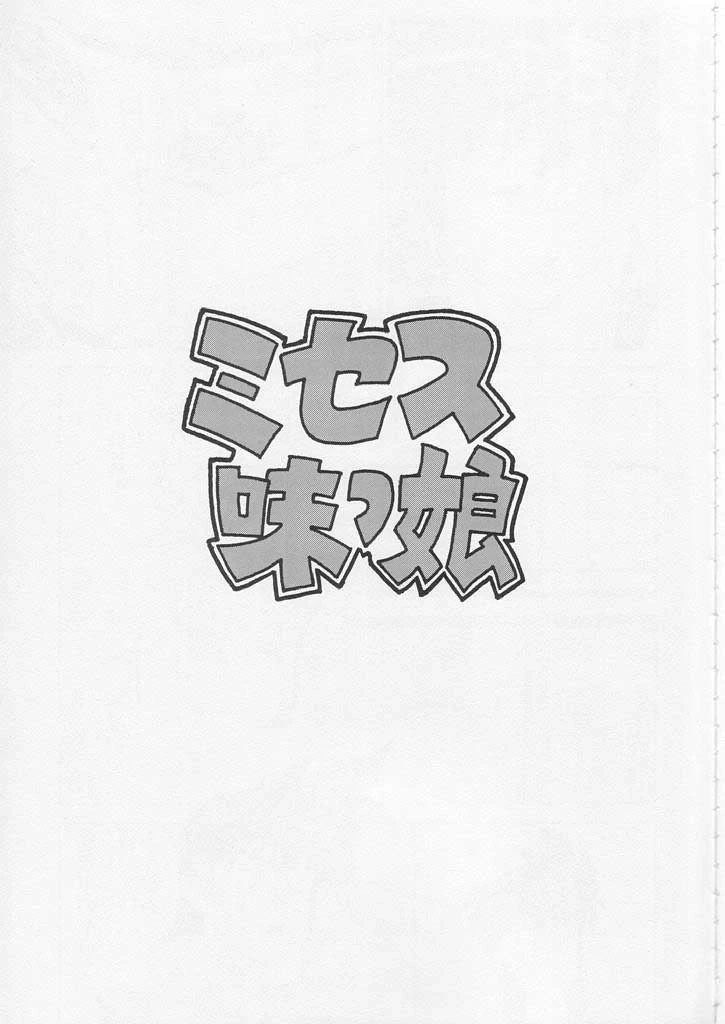 ミセス
味っ娘